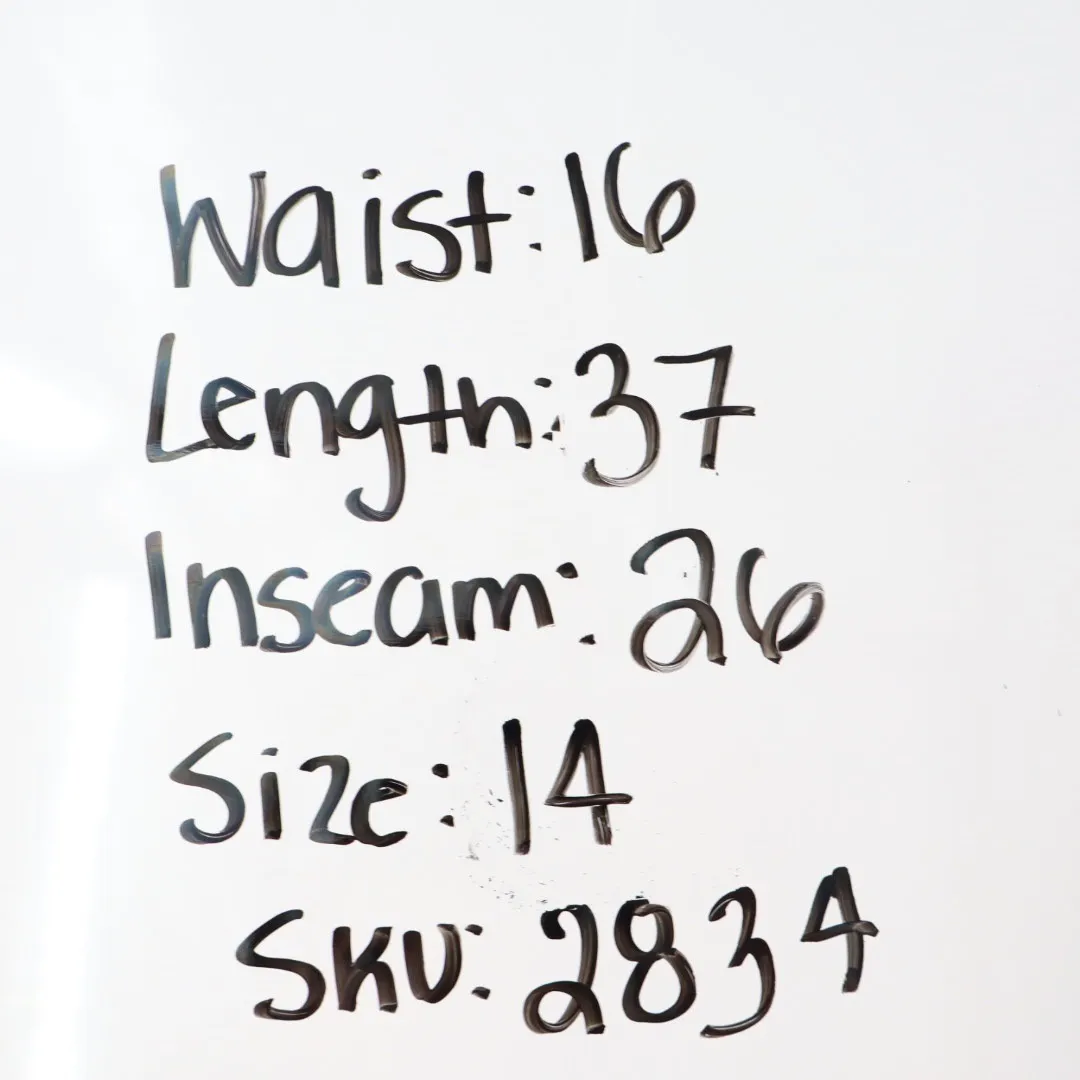 Waist: 16
Length: 37
Inseam: 26
Size: 14
SKU: 2834